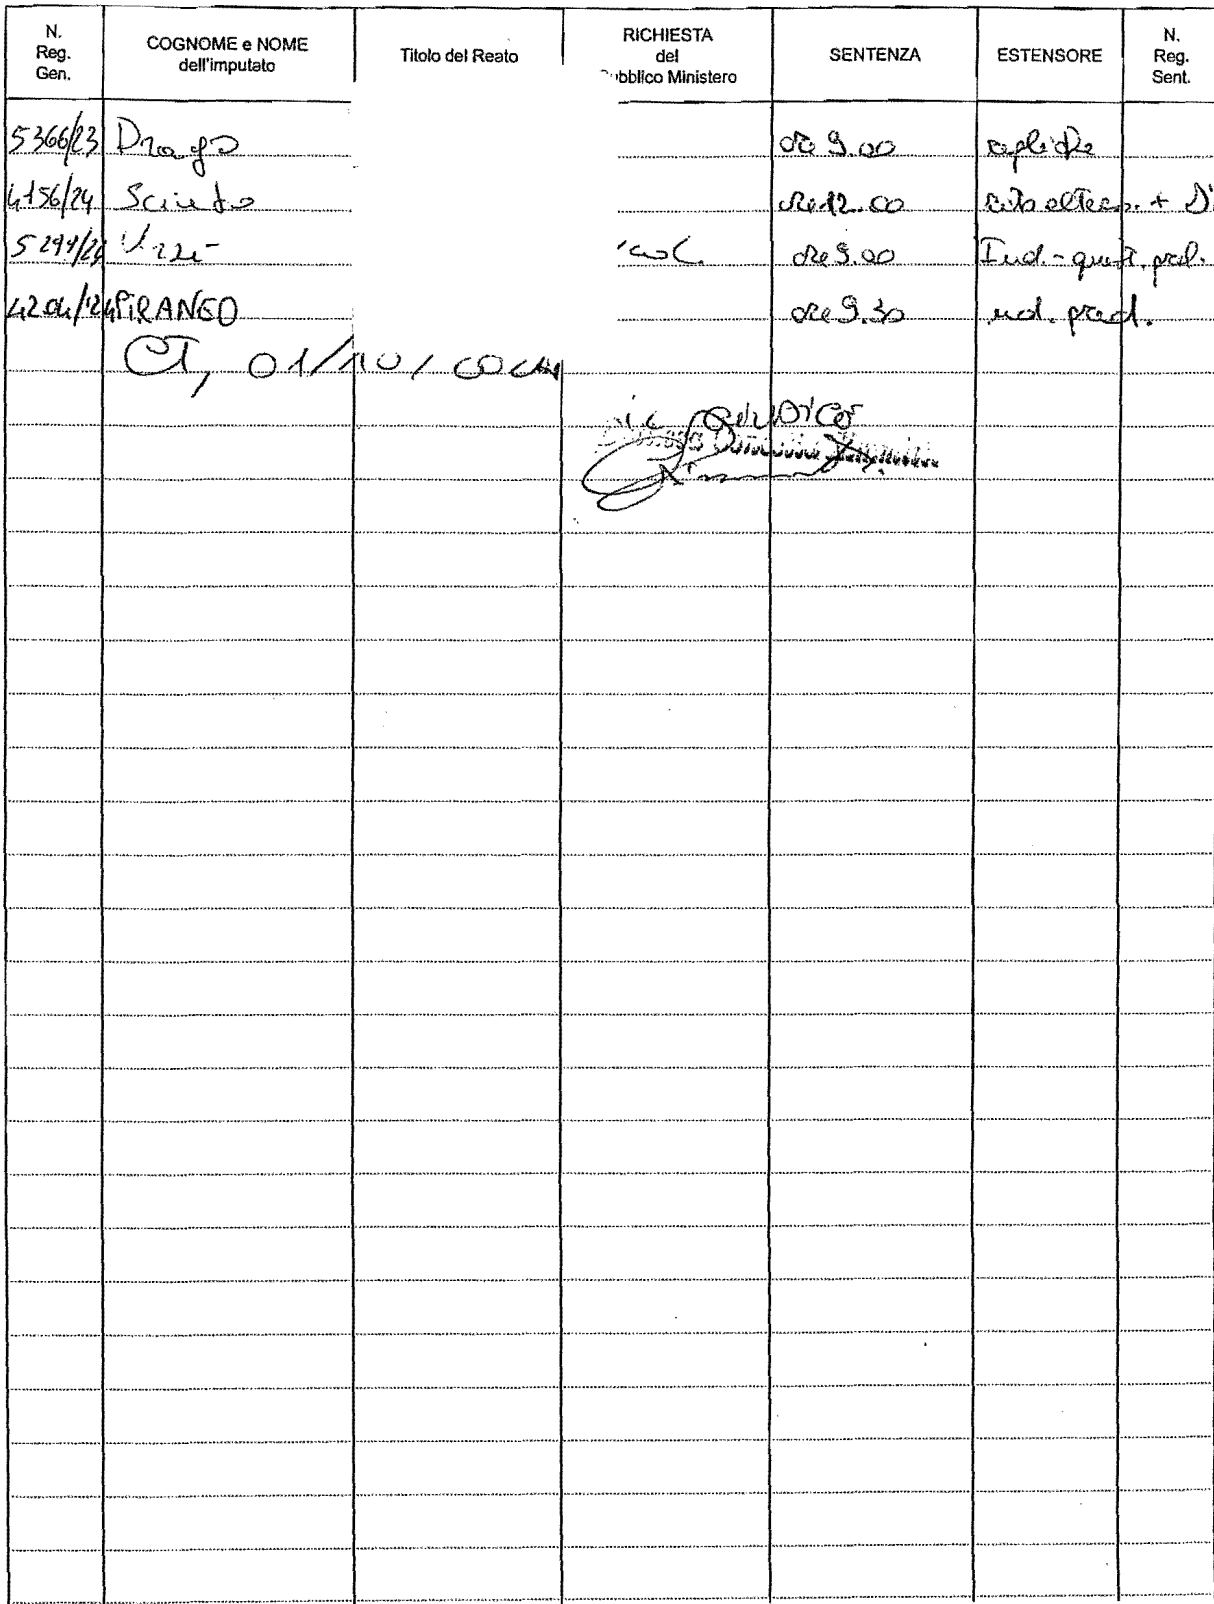 N. Reg. Gen. COGNOME e NOME dell'imputato Titolo del Reato RICHIESTA del Pubblico Ministero SENTENZA ESTENSORE N. Reg. Sent.
5366/23 Drago ore 9.00 repliche
4156/24 Sciuto ore 12.00 rito altern. +
Urzì ore 9.00 Ind. - quest. prel.
4204/24 PIRANEO ore 9.30 ud. pred.
CT, 01/10/
il GIUDICE